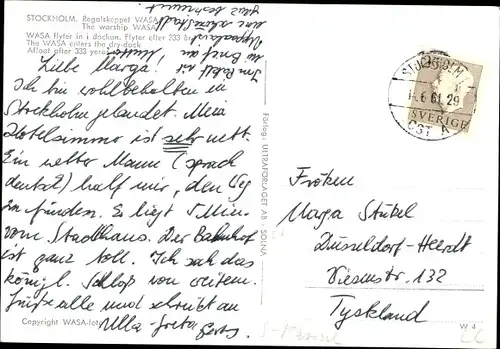 STOCKHOLM. Regalskeppet WASA
The worship WASA
WASA flyter in i dockan. Flyter efter 333 år
The WASA enters the dry-dock.
Afloat after 333 years
Liebe Marga!
Ich bin wohlbehalten in
Stockholm gelandet. Mein
Hotelzimmer ist sehr nett.
Ein netter Mann (sprach
deutsch) half mir, den Weg
zu finden. Es liegt 5 Min.
vom Stadthaus. Der Bahnhof
ist ganz toll. Ich sah das
königl. Schloß von weitem.
Grüße alle und schreibt an
Ulla-Greta
Copyright WASA-foto
Förlag: ULTRAFÖRLAGET AB - SOLNA
STOCKHOLM
61 29
ÖST A
SVERIGE
Fröken
Marga Stübel
Düsseldorf-Heerdt
Viersenstr. 132
Tyskland
W 4